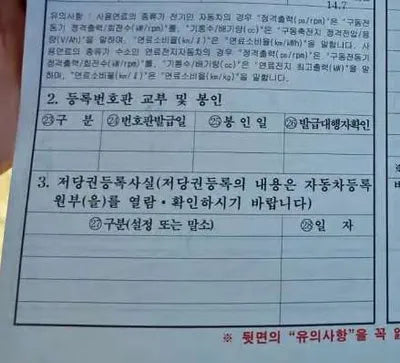 14.7
유의사항 : 사용연료의 종류가 전기인 자동차의 경우 "정격출력(ps/rpm)"은 "구동전
동기 정격출력/회전수(kW/rpm)를, "기통수/배기량(cc)"은 "구동축전지 정격전압/용
량(V/Ah)"을 말하며, "연료소비율(km/ℓ)"은 "연료소비율(km/kWh)"을 말합니다. 사
용연료의 종류가 수소인 연료전지자동차의 경우 "정격출력(ps/rpm)"은 "구동전동기
정격출력/회전수(kW/rpm)"를, "기통수/배기량(cc)"은 "연료전지 최고출력(kW)"을 말
하며, "연료소비율(km/ℓ)"은 "연료소비율(km/kg)"을 말합니다.
2. 등록번호판 교부 및 봉인
㉓구 분 ㉔번호판발급일 ㉕봉 인 일 ㉖발급대행자확인
3. 저당권등록사실(저당권등록의 내용은 자동차등록
원부(을)를 열람·확인하시기 바랍니다)
㉗구분(설정 또는 말소) ㉘일 자
※ 뒷면의 "유의사항"을 꼭